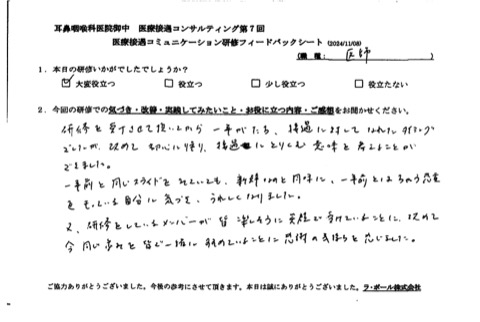 耳鼻咽喉科医院御中 医療接遇コンサルティング第7回
医療接遇コミュニケーション研修フィードバックシート (2024/11/08)
(職種: 医師 )
1.本日の研修いかがでしたでしょうか?
☑大変役立つ □役立つ □少し役立つ □役立たない
2.今回の研修での気づき・改善・実践してみたいこと・お役に立つ内容・ご感想をお聞かせください。
研修を受けさせて頂いてから一年がたち、接遇に対してなれたタイミング
でしたが、改めて初心に帰り、接遇にとりくむ意味を考えることが
できました。
一年前と同じスライドを見ていても、新鮮なのと同時に、一年前とは違う感覚
をもっている自分に気づき、うれしくなりました。
又、研修をしているメンバーが皆楽しそうに笑顔で受けていることに、改めて
今同じ歩みを皆で一緒に進めていることに感謝の気持ちを感じました。
ご協力ありがとうございました。今後の参考にさせて頂きます。本日は誠にありがとうございました。ラ・ポール株式会社